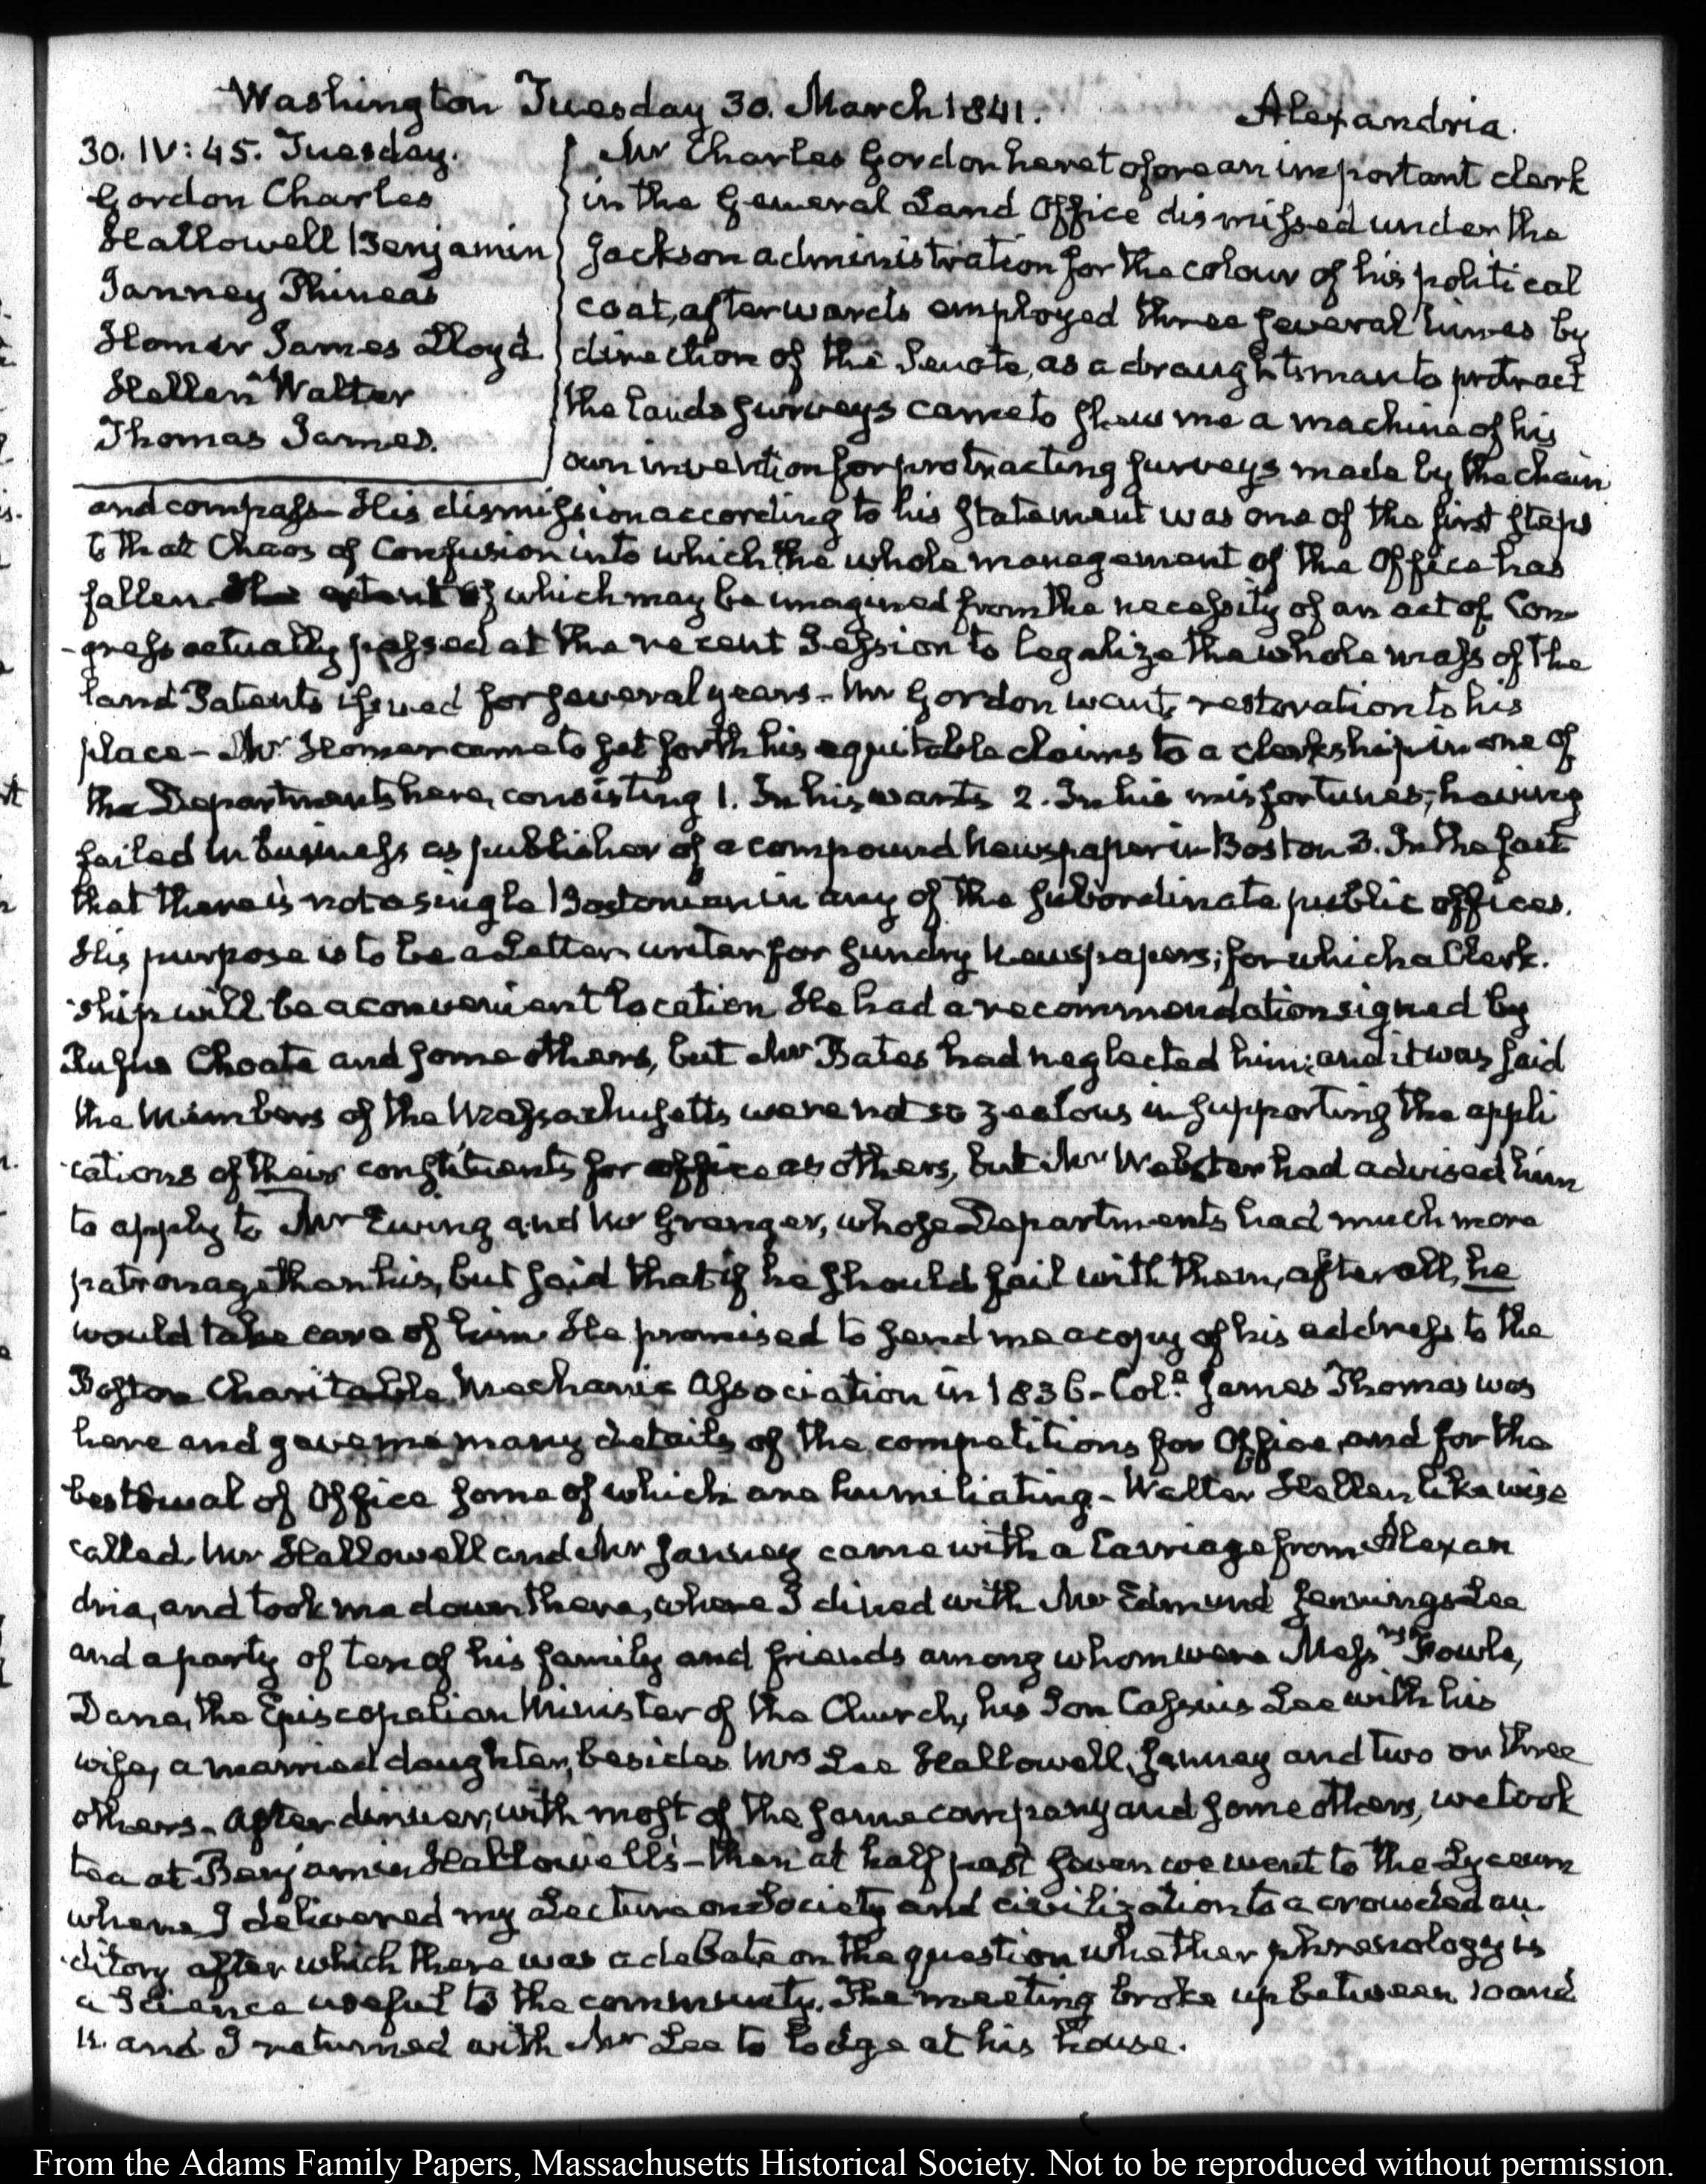 Washington Tuesday 30. March 1841. Alexandria.
30. IV: 45. Tuesday.
Gordon Charles
Hallowell Benjamin
Janney Phineas
Homer James Lloyd
Hellen Walter
Thomas James.
Mr Charles Gordon heretofore an important clerk
in the General Land Office dismissed under the
Jackson administration for the colour of his political
coat, afterwards employed three several times by
direction of the Senate, as a draughtsman to protract
the lands surveys came to shew me a machine of his
own invention for protracting surveys made by the chain
and compass— His dismission according to his statement was one of the first steps
to that Chaos of Confusion into which the whole management of the Office has
fallen the extent of which may be imagined from the necessity of an act of Con
-gress actually passed at the recent Session to legalize the whole mass of the
land Patents issued for several years— Mr Gordon wants restoration to his
place— Mr Homer came to set forth his equitable claims to a clerkship in one of
the Departments here, consisting 1. In his wants 2. In his misfortunes; having
failed in business as publisher of a compound Newspaper in Boston 3. In the fact
that there is not a single Bostonian in any of the subordinate public offices.
His purpose is to be a Letter writer for sundry Newspapers; for which a Clerk-
-ship will be a convenient location He had a recommendation signed by
Rufus Choate and some others, but Mr Bates had neglected him; and it was said
the Members of the Massachusetts were not so zealous in supporting the appli
-cations of their constituents for office as others, but Mr Webster had advised him
to apply to Mr Ewing and Mr Granger, whose Departments had much more
patronage than his, but said that if he should fail with them, after all, he
would take care of him. He promised to send me a copy of his address to the
Boston Charitable Mechanic Association in 1836— Col.l James Thomas was
here and gave me many details of the competitions for Office, and for the
bestowal of Office some of which are humiliating— Walter Hellen likewise
called. Mr Hallowell and Mr Janney came with a Carriage from Alexan
dria, and took me down there, where I dined with Mr Edmund Jennings Lee
and a party of ten of his family and friends among whom were Messrs Fowle,
Dana, the Episcopalian Minister of the Church, his Son Cassius Lee with his
wife, a married daughter, besides Mrs Lee Hallowell, Janney and two or three
others— After dinner, with most of the same company and some others, we took
tea at Benjamin Hallowell's— then at half past seven we went to the Lyceum
where I delivered my Lecture on Society and civilization to a crowded au
-ditory after which there was a debate on the question whether phrenology is
a Science useful to the community. The meeting broke up between 10 and
11. and I returned with Mr Lee to lodge at his house.
From the Adams Family Papers, Massachusetts Historical Society. Not to be reproduced without permission.